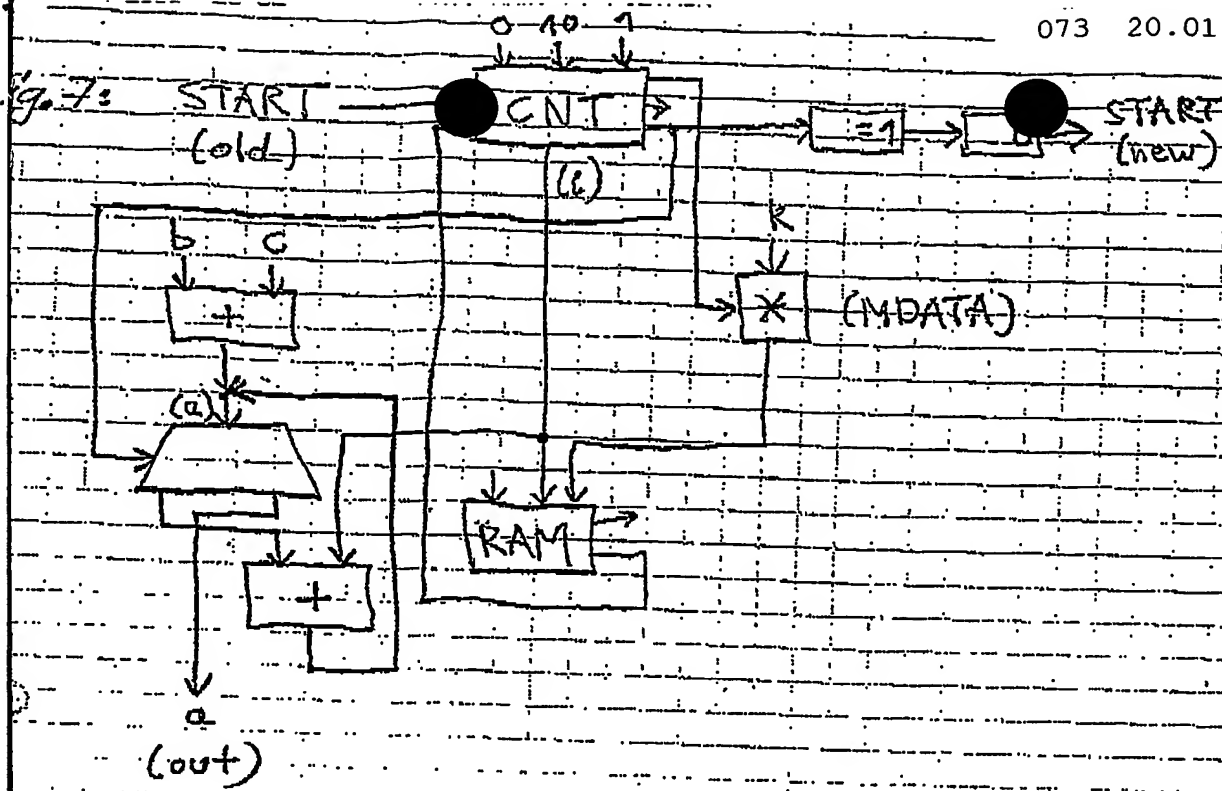 073 20.01
0 10 1
Fig. 7: START CNT =1 0 START
(old) (new)
(i)
b c K
+ × (MDATA)
(a)
RAM
+
a
(out)